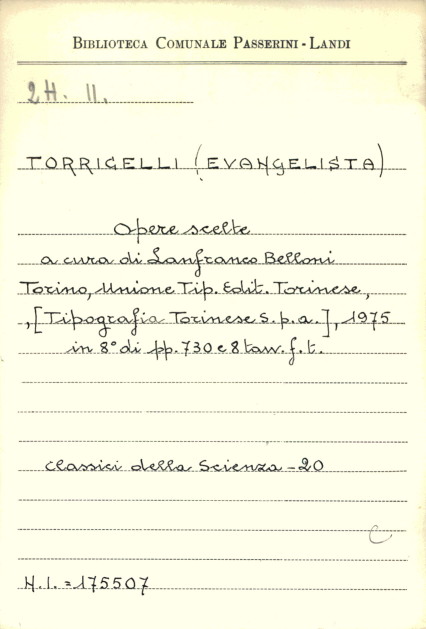 BIBLIOTECA COMUNALE PASSERINI - LANDI
2H. II.
TORRICELLI (EVANGELISTA)
Opere scelte
a cura di Lanfranco Belloni
Torino, Unione Tip. Edit. Torinese,
, [Tipografia Torinese s.p.a.], 1975
in 8° di pp. 730 e 8 tavv. f. t.
Classici della Scienza - 20
C
N.I. = 175507